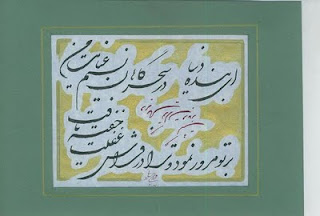 ای بنده دنیا در سحرگاهان نسیم عنایت من
بر تو مرور نمود و ترا در فراش غفلت
خفته یافت